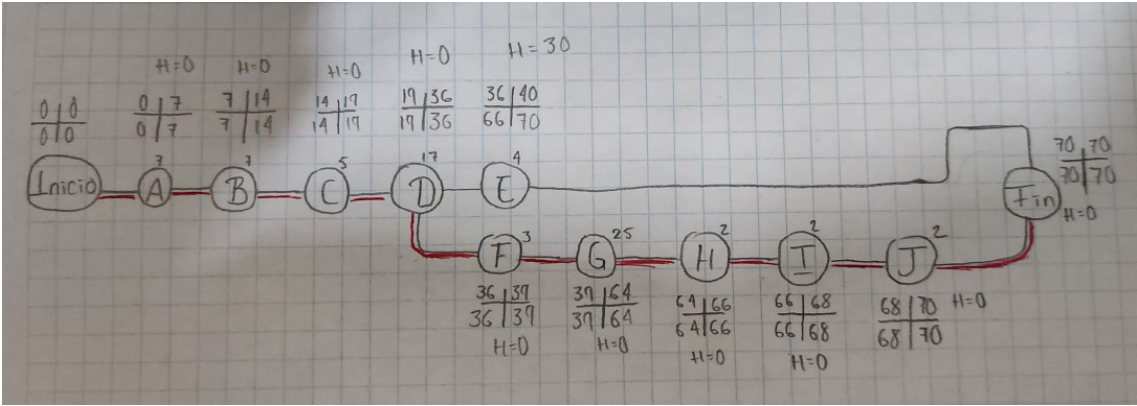 H=0 H=0 H=0 H=0 H=30
0 0
0 0
0 7
0 7
7 14
7 14
14 19
14 19
19 36
19 36
36 40
66 70
7 7 5 17 4
Inicio A B C D E
70 70
70 70
Fin
H=0
3 25 2 2 2
F G H I J
36 39
36 39
H=0
39 64
39 64
H=0
64 66
64 66
H=0
66 68
66 68
H=0
68 70
68 70
H=0